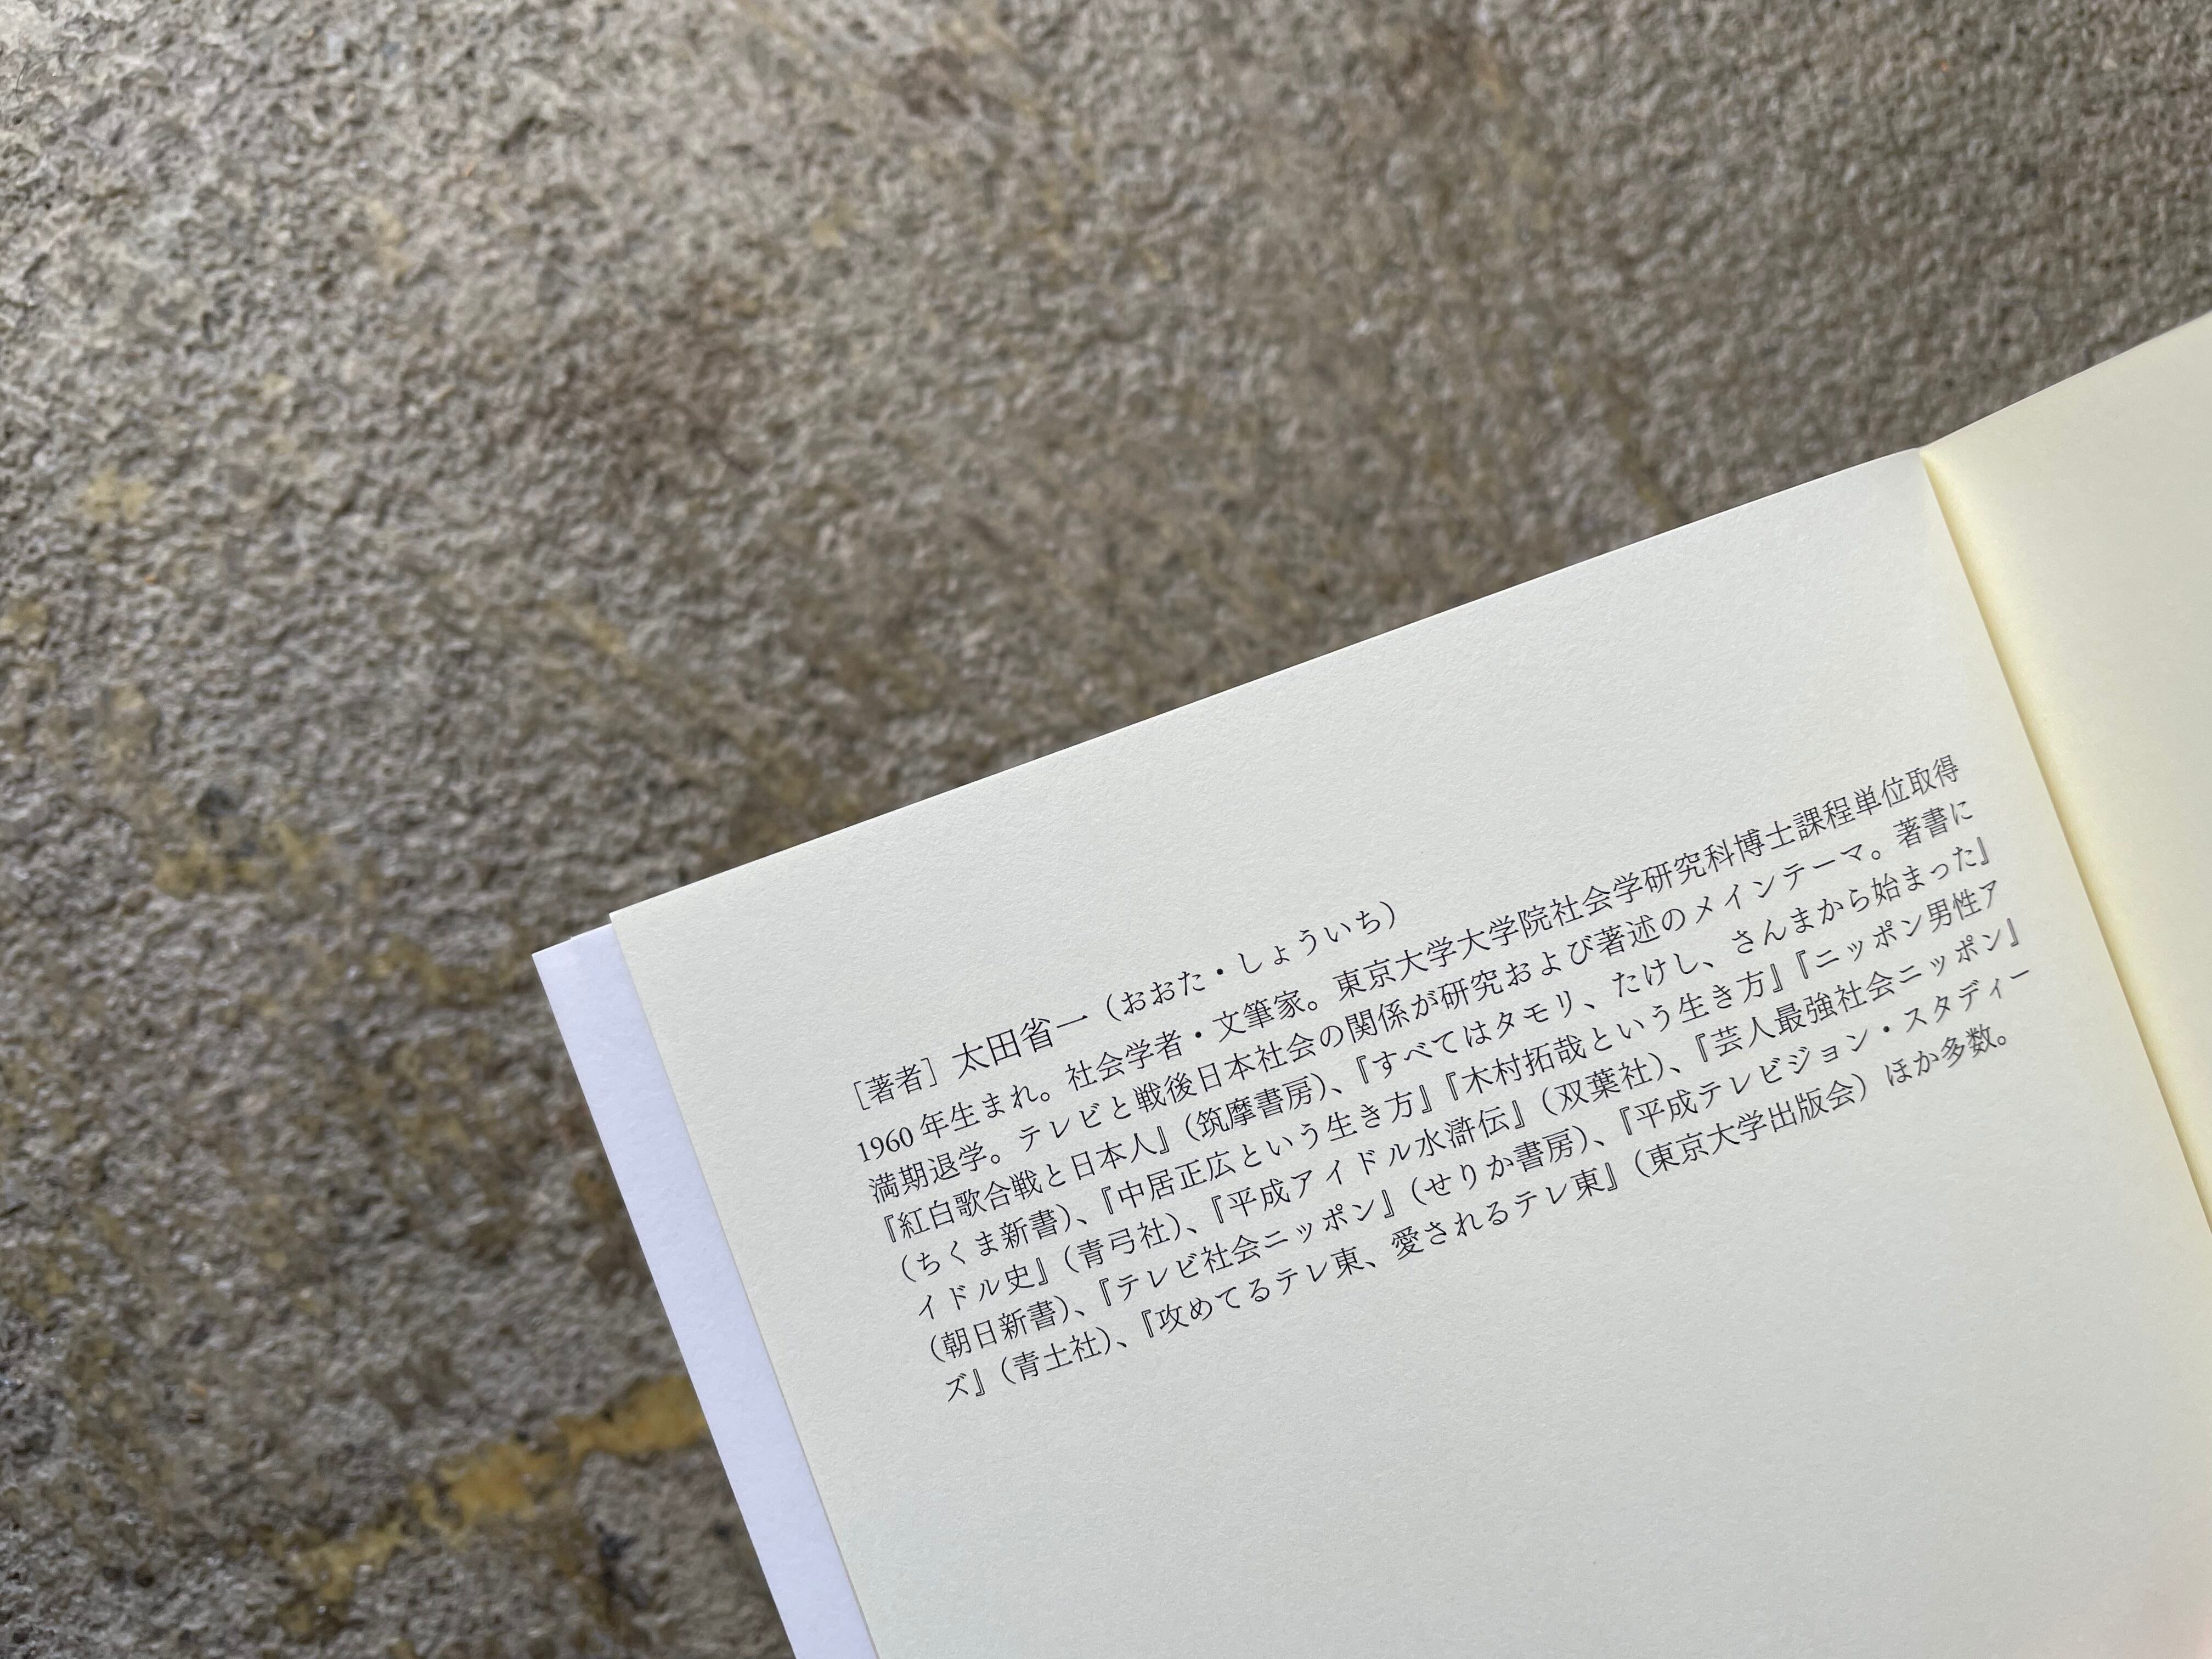 ［著者］太田省一（おおた・しょういち）
1960年生まれ。社会学者・文筆家。東京大学大学院社会学研究科博士課程単位取得
満期退学。テレビと戦後日本社会の関係が研究および著述のメインテーマ。著書に
『紅白歌合戦と日本人』（筑摩書房）、『すべてはタモリ、たけし、さんまから始まった』
（ちくま新書）、『中居正広という生き方』『木村拓哉という生き方』『ニッポン男性ア
イドル史』（青弓社）、『平成アイドル水滸伝』（双葉社）、『芸人最強社会ニッポン』
（朝日新書）、『テレビ社会ニッポン』（せりか書房）、『平成テレビジョン・スタディー
ズ』（青土社）、『攻めてるテレ東、愛されるテレ東』（東京大学出版会）ほか多数。